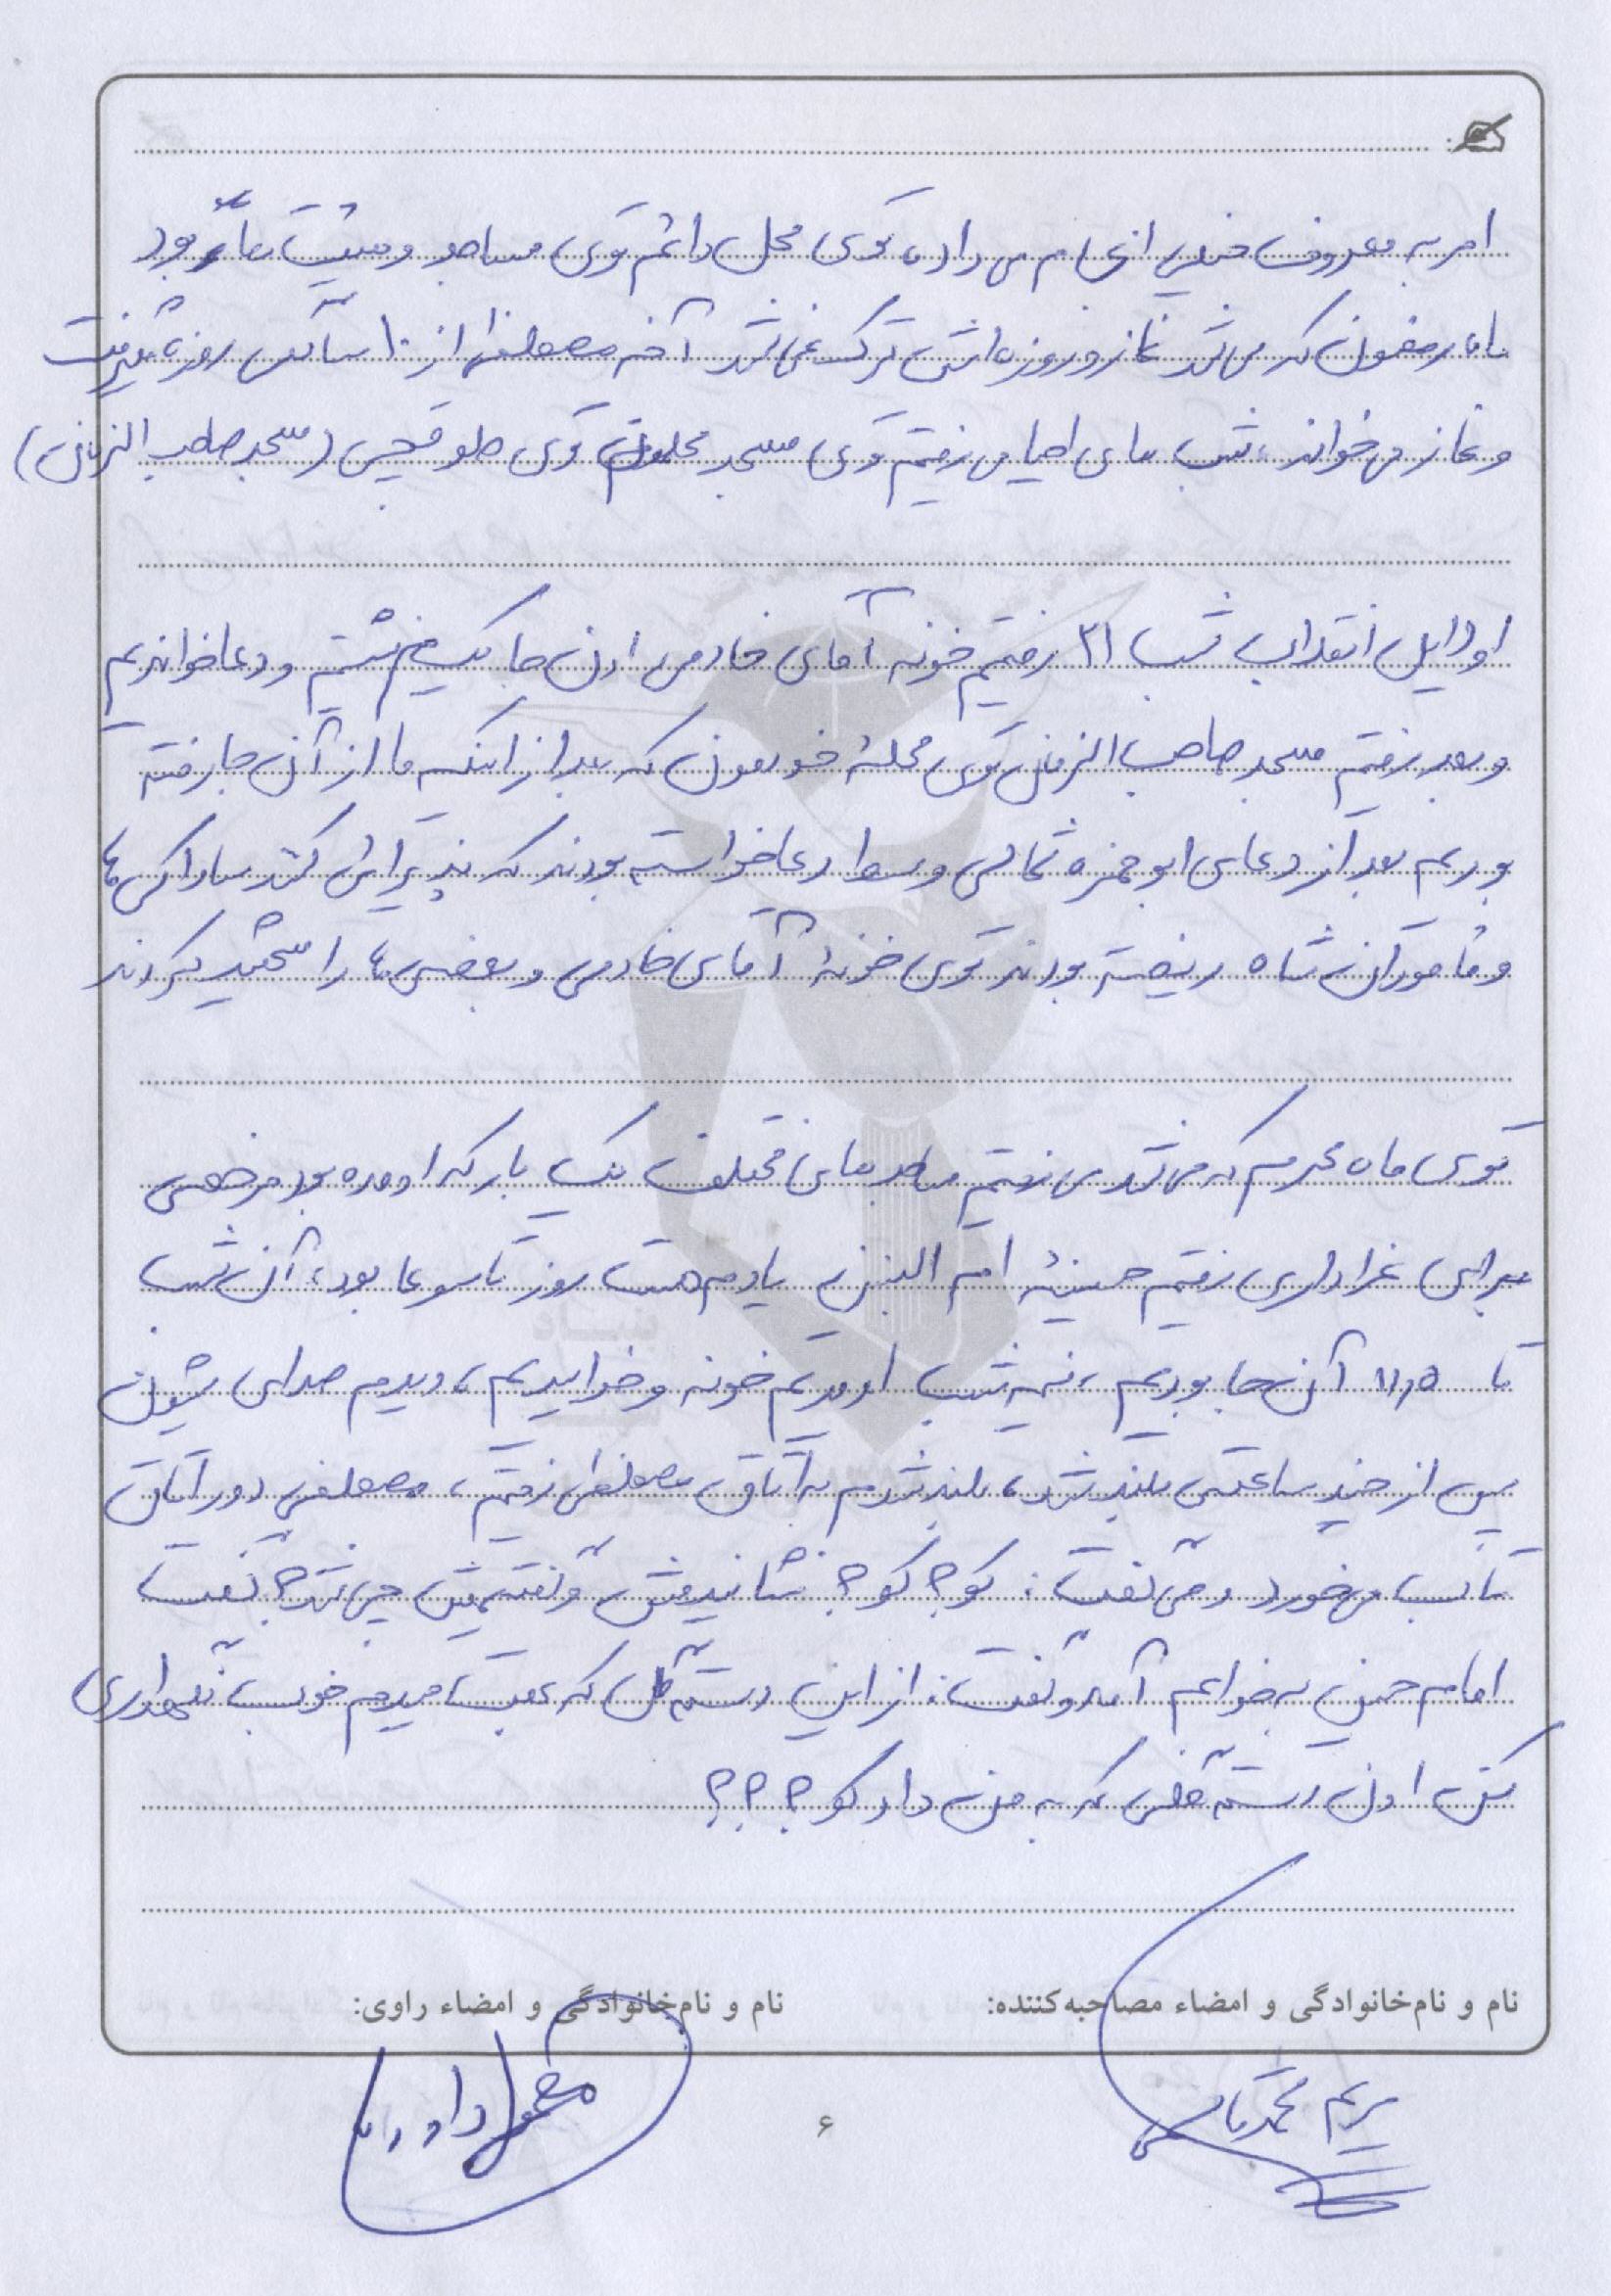 امر به معروف خیلی انجام می داد، توی محل دائم توی مساجد و هیئت ها بود
ماه رمضون که می شد نماز و روزه اش ترک نمی شد آخه مصطفی از ۱۰ سالگی روزه می گرفت
و نماز می خواند، شب های احیا می رفتیم توی مسجد محلمون توی طوقچی (مسجد صاحب الزمان)
اوایل انقلاب شب ۲۱ رفتیم خونه آقای خادمی اون جا یک نشستیم و دعا خواندیم
و بعد رفتیم مسجد صاحب الزمان توی محله خودمون که بعد از اینکه ما از آن جا رفته
بودیم بعد از دعای ابوحمزه ثمالی وسط دعا خواسته بودند که پذیرایی کنند ساواکی ها
و مأموران شاه ریخته بودند توی خونه آقای خادمی و بعضی ها را شهید کردند
توی ماه محرم که می شد می رفتیم مساجد های مختلف یک بار که اومده بود مرخصی
برای عزاداری رفتیم حسینیه ام البنین یادم هست روز تاسوعا بود، آن شب
تا ۱۱٫۵ آن جا بودیم، نیمه شب اومدیم خونه و خوابیدیم، دیدم صدای شیون
پس از چند ساعتی بلند شد، بلند شدم به اتاق مصطفی رفتم، مصطفی دور اتاق
تاب می خورد و می گفت: کو؟ کو؟ نشاندیمش و گفتیمش چی شد؟ گفت
امام حسین به خوابم آمد و گفت: از این دسته گل که بهت میدم خوب نگهداری
کن اون دسته گلی که به من داد کو؟؟؟
نام و نام خانوادگی و امضاء مصاحبه کننده:
نام و نام خانوادگی و امضاء راوی:
مریم
۶